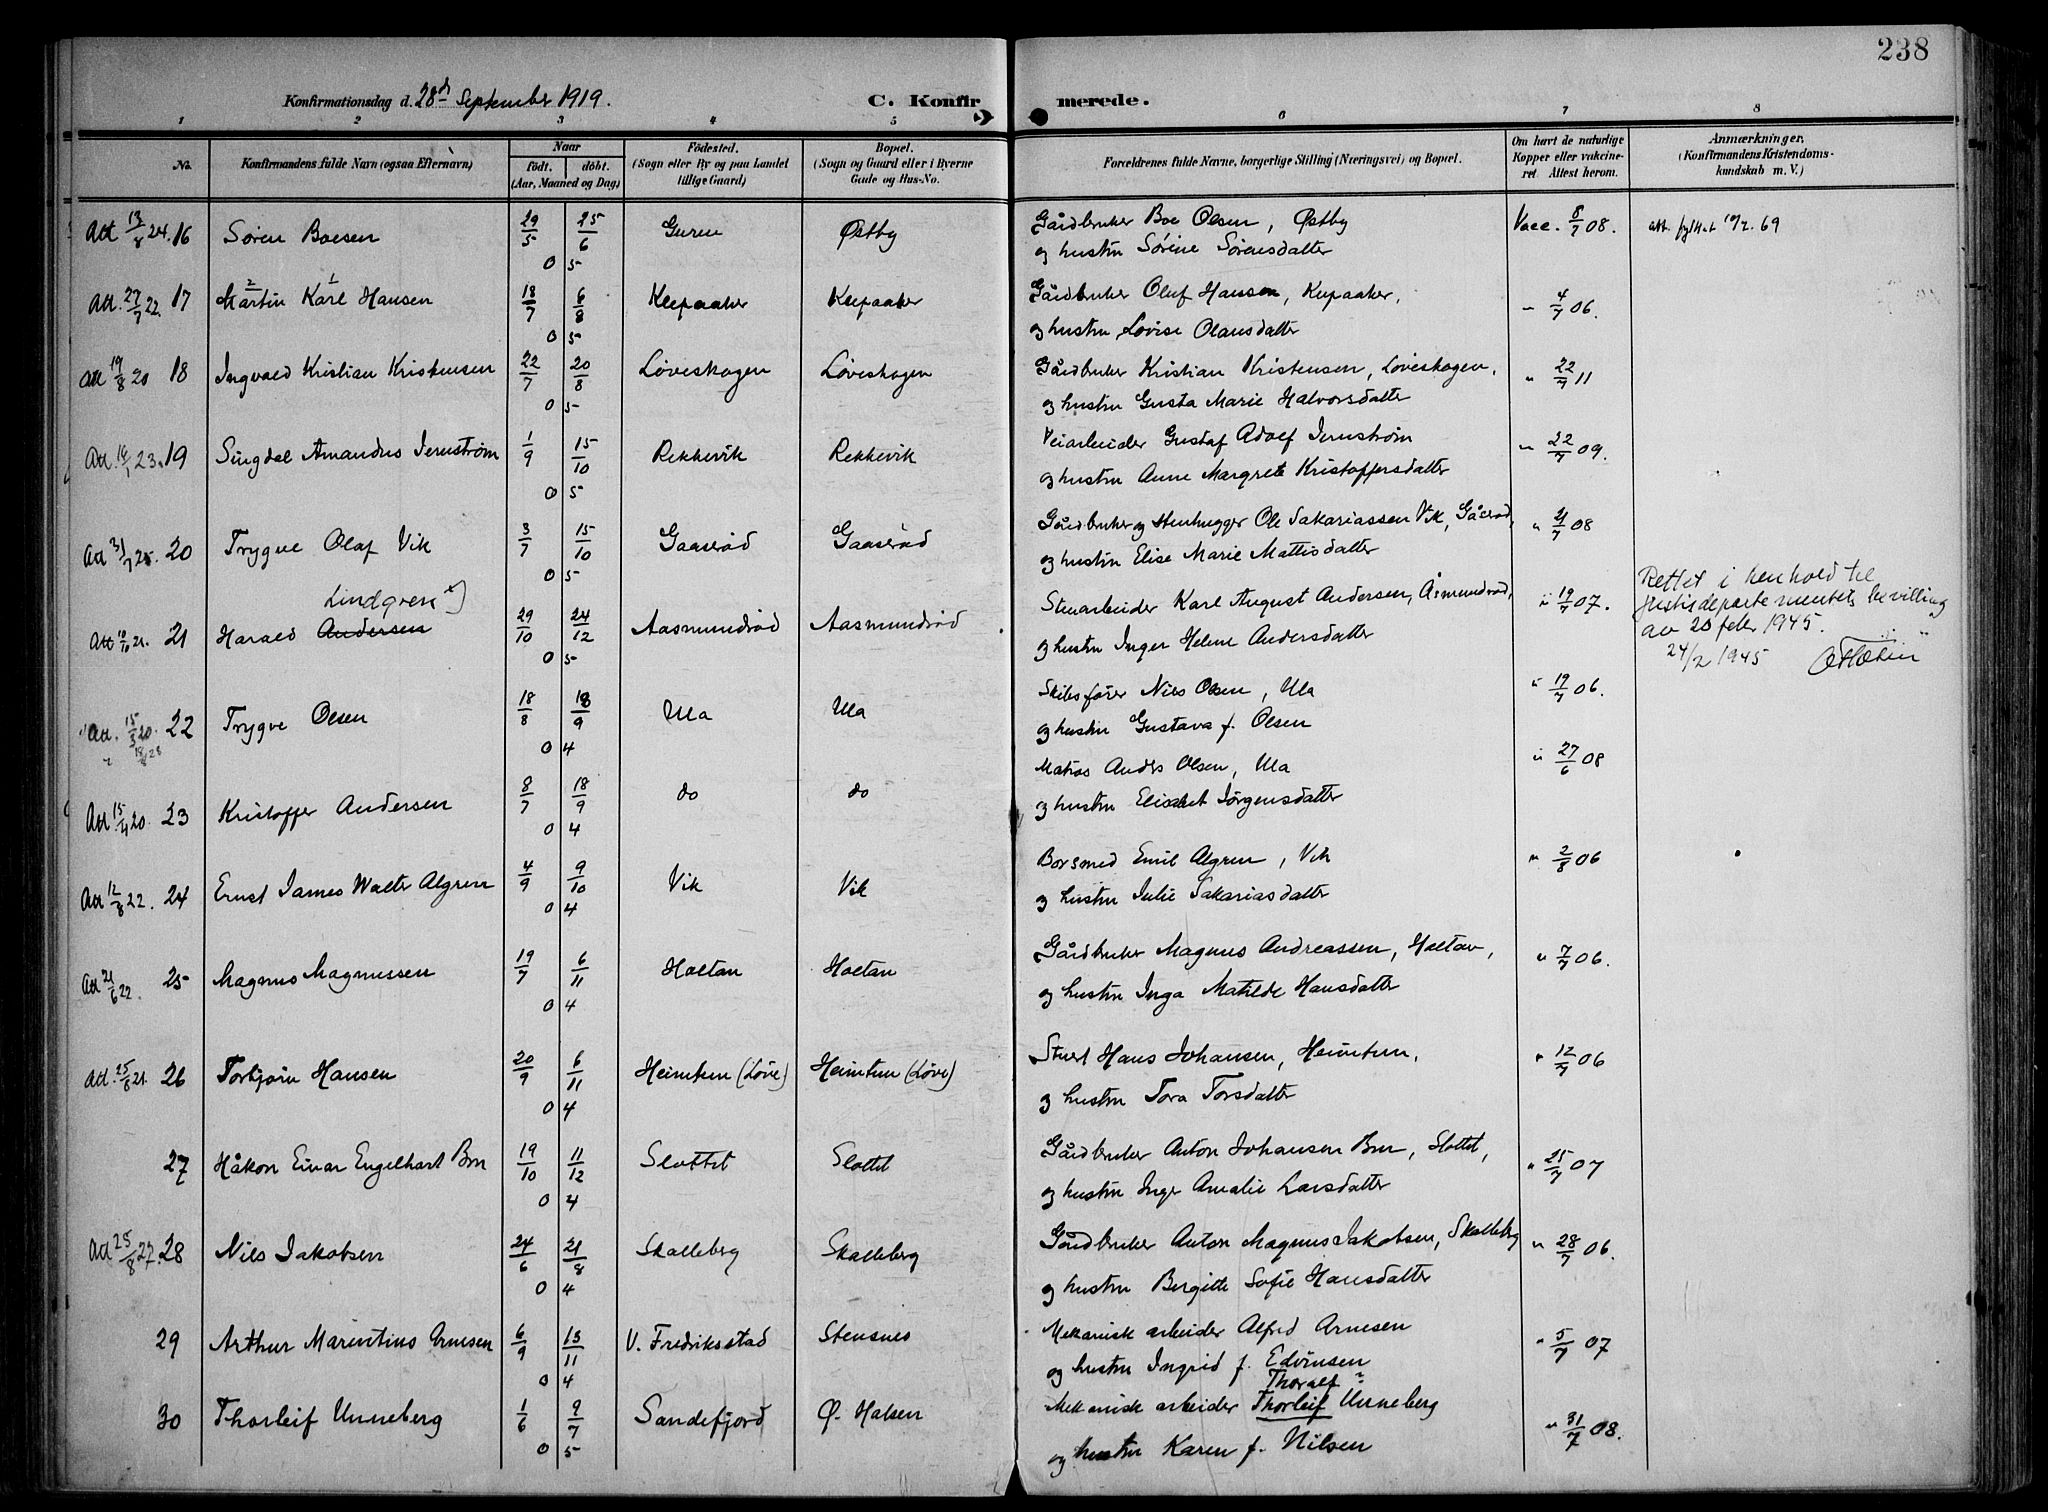 238
Konfirmationsdag d. 28d September 1919. C. Konfirmerede.
1 2 3 4 5 6 7 8
No. Konfirmandens fulde Navn (ogsaa Efternavn) Naar født. døbt. (Aar, Maaned og Dag) Fødested. (Sogn eller By og paa Landet tillige Gaard) Bopæl. (Sogn og Gaard eller i Byerne Gade og Hus-No. Forældrenes fulde Navne, borgerlige Stilling (Næringsvei) og Bopæl. Om havt de naturlige Kopper eller vaccineret. Attest herom. Anmærkninger. (Konfirmandens Kristendomskundskab m. V.)
Att 13/8 24. 16 Søren Boesen 29/5 25/6 05 Guren Østby Gårdbruker Boe Olsen, Østby Vacc. 8/7 08.
og hustru Sørine Sørensdatter
Att. 27/7 22. 17 Martin Karl Hansen 18/7 6/8 05 Klepaaker Klepaaker Gårdbruker Oluf Hansen, Klepaaker, " 4/7 06.
og hustru Lovise Olausdatter
Att 19/8 20 18 Ingvald Kristian Kristensen 22/7 20/8 05 Løveskogen Løveskogen Gårdbruker Kristian Kristensen, Løveskogen, " 22/7 11
og hustru Gusta Marie Halvorsdatter
Att. 23. 19 Singdal Amandus Jernstrøm 1/9 15/10 05 Rekkevik Rekkevik Veiarbeider Gustaf Adolf Jernstrøm " 22/7 09.
og hustru Anne Margrete Kristoffersdatter
Att 31/7 25. 20 Trygve Olaf Vik 3/7 15/10 05 Gaaserød Gaaserød Gårdbruker og Stenhugger Ole Sakariassen Vik, Gåserød, " 21/7 08
og hustru Elise Marie Mattisdatter
Lindgren x)
Att 10/10 21. 21 Harald Andersen 29/10 24/12 05 Aasmundrød Aasmundrød Stenarbeider Karl August Andersen, Åsmundrød, " 19/7 07.
og hustru Inger Helene Andersdatter
Rettet i henhold til
Justisdepartementets bevilling
av 20 febr 1945.
24/2 1945
Att. 15/3 20. 22 Trygve Olsen 18/8 18/9 04 Ula Ula Skibsfører Nils Olsen, Ula " 19/7 06.
og hustru Gustava f. Olsen
Att 15/4 20. 23 Kristoffer Andersen 8/7 18/9 04 do do Matros Anders Olsen, Ula " 27/6 08
og hustru Elisabet Jørgensdatter
Att 12/8 22. 24 Ernst James Walter Algren 4/9 9/10 04 Vik Vik Borsmed Emil Algren, Vik " 2/8 06
og hustru Julie Sakariasdatter
Att 21/6 22. 25 Magnus Magnussen 19/7 6/11 04 Holtan Holtan Gårdbruker Magnus Andreassen, Holtan, " 7/7 06.
og hustru Inga Matilde Hansdatter
Att. 25/8 21. 26 Torbjørn Hansen 20/9 6/11 04 Heimtun (Løve) Heimtun (Løve) Stuert Hans Johansen, Heimtun, " 12/7 06
og hustru Tora Torsdatter
27 Håkon Einar Engelhart Bru 19/10 11/12 04 Slottet Slottet Gårdbruker Anton Johansen Bru, Slottet, " 25/7 07
og hustru Inger Amalie Larsdatter
Att 25/8 27. 28 Nils Jakobsen 24/6 21/8 04 Skalleberg Skalleberg Gårdbruker Anton Magnus Jakobsen, Skalleberg " 28/7 06.
og hustru Bergitte Sofie Hansdatter
29 Arthur Marentius Arnesen 6/9 13/11 04 V. Fredriksstad Stensnes Mekanisk arbeider Alfred Arnesen " 5/7 07
og hustru Ingrid f. Edvinsen
Thoralf ?
30 Thorleif Unneberg 1/6 9/7 05 Sandefjord Ø. Halsen Mekanisk arbeider Thorleif Unneberg " 31/7 08.
og hustru Karen f. Nilsen